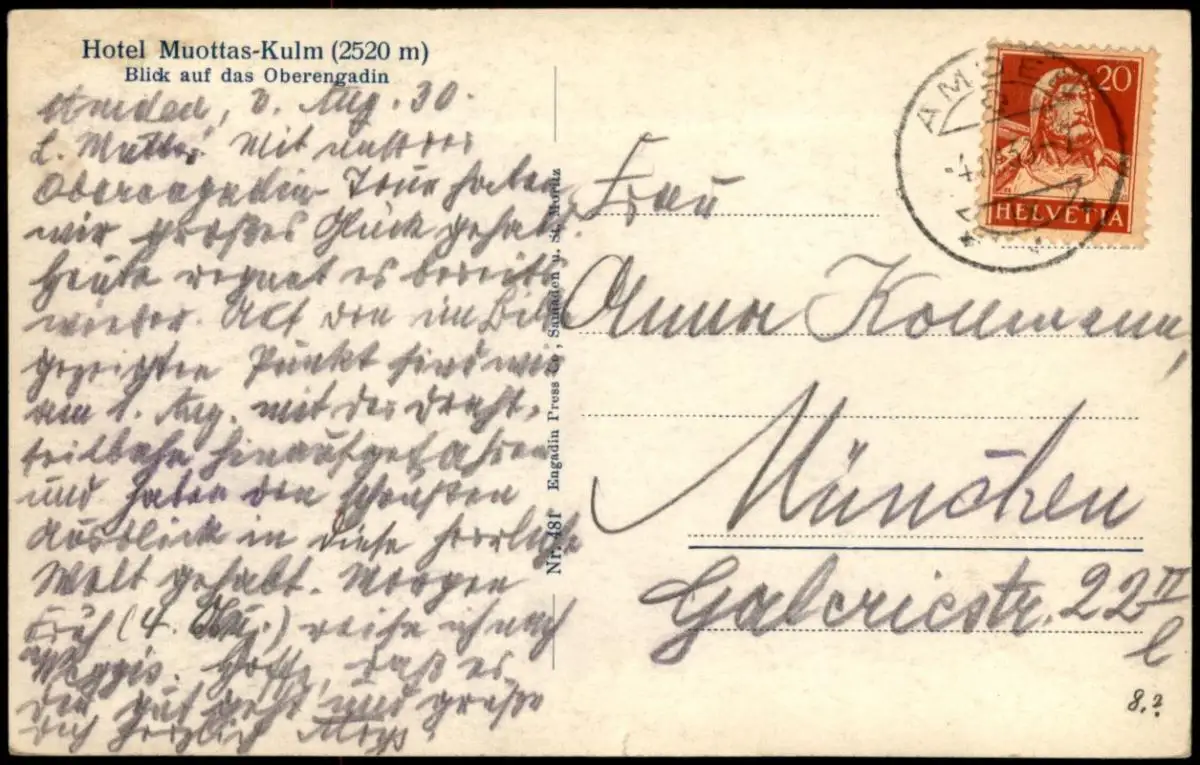 Hotel Muottas-Kulm (2520 m)
Blick auf das Oberengadin
3. Aug. 30.
L. Mutter! Mit unserer
Oberengadin Tour haben
wir großes Glück gehabt.
Heute regnet es bereits
wieder. Auf den im Bilde
gezeigten Punkt sind wir
am 1. Aug. mit der Draht-
seilbahn hinaufgefahren
und haben den schönsten
Ausblick in diese herrliche
Welt gehabt. Morgen
früh (4. Aug.) reise ich nach
Weggis. Hoffe, daß es
dir gut geht und grüße
dich herzlich
Nr. 481 Engadin Press Co., Samaden u. St. Moritz
HELVETIA
20
Frau
Anna Kollmann,
München
Galeriestr. 22 II
l
8.?